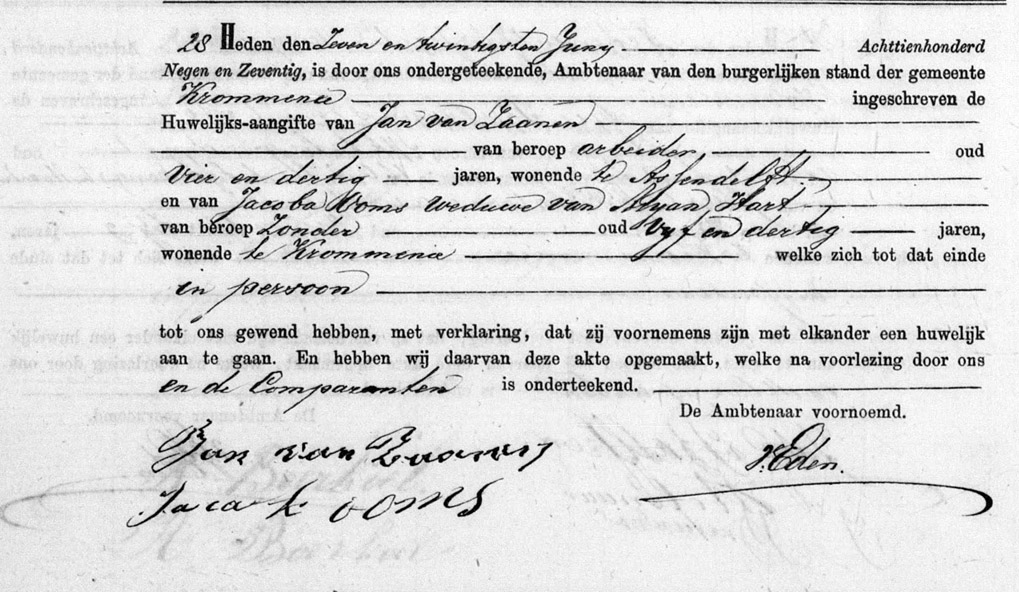 28 Heden den Zeven en twintigsten Juny Achttienhonderd
Negen en Zeventig, is door ons ondergeteekende, Ambtenaar van den burgerlijken stand der gemeente
Krommenie ingeschreven de
Huwelijks-aangifte van Jan van Zaanen
van beroep arbeider, oud
Vier en dertig jaren, wonende te Assendelft
en van Jacoba Ooms weduwe van Aryan Hart
van beroep Zonder oud Vyf en dertig jaren,
wonende te Krommenie welke zich tot dat einde
in persoon
tot ons gewend hebben, met verklaring, dat zij voornemens zijn met elkander een huwelijk
aan te gaan. En hebben wij daarvan deze akte opgemaakt, welke na voorlezing door ons
en de Comparanten is onderteekend.
De Ambtenaar voornoemd.
Jan van
ooms